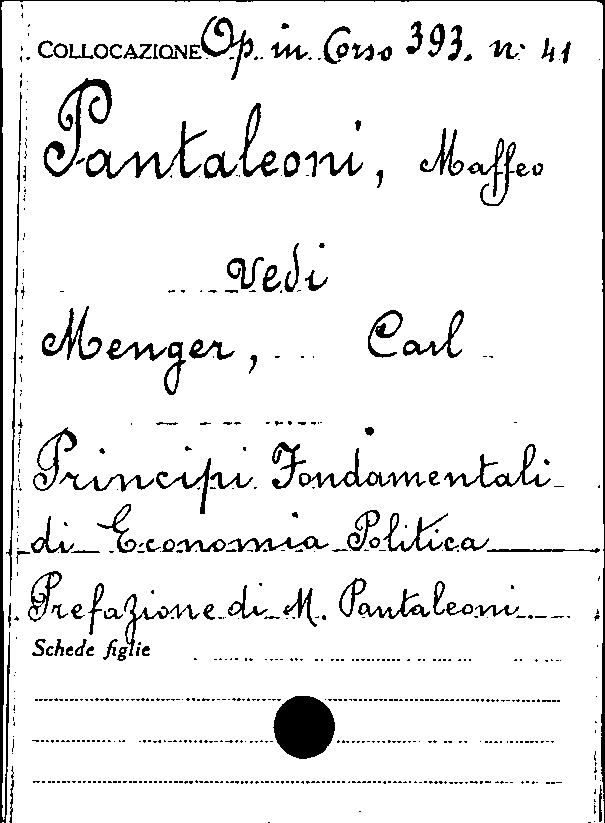 COLLOCAZIONE Op. in Corso 393. n: 41
Pantaleoni, Maffeo
Vedi
Menger, Carl
Principi Fondamentali
di Economia Politica
Prefazione di M. Pantaleoni.
Schede figlie